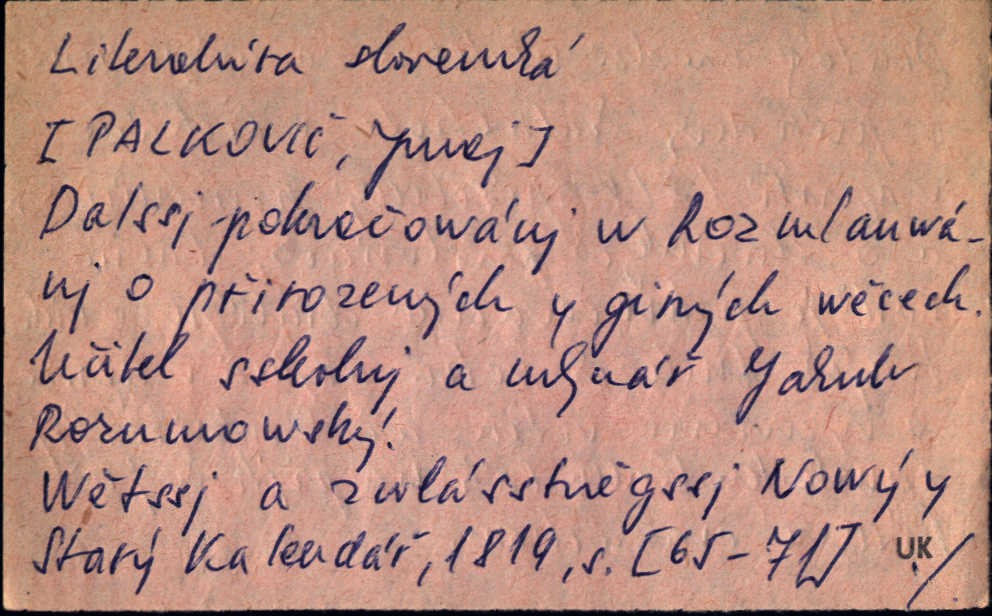 Literatúra slovenská
[PALKOVIČ, Juraj]
Dalssj pokračowánj w Rozmlauwá-
nj o přirozených y giných wěcech.
Učitel sskolnj a mlynář Jakub
Rozumowský.
Wětssj a zwlásstněgssj Nowý y
Starý Kalendář, 1819, s. [65-71]
UK